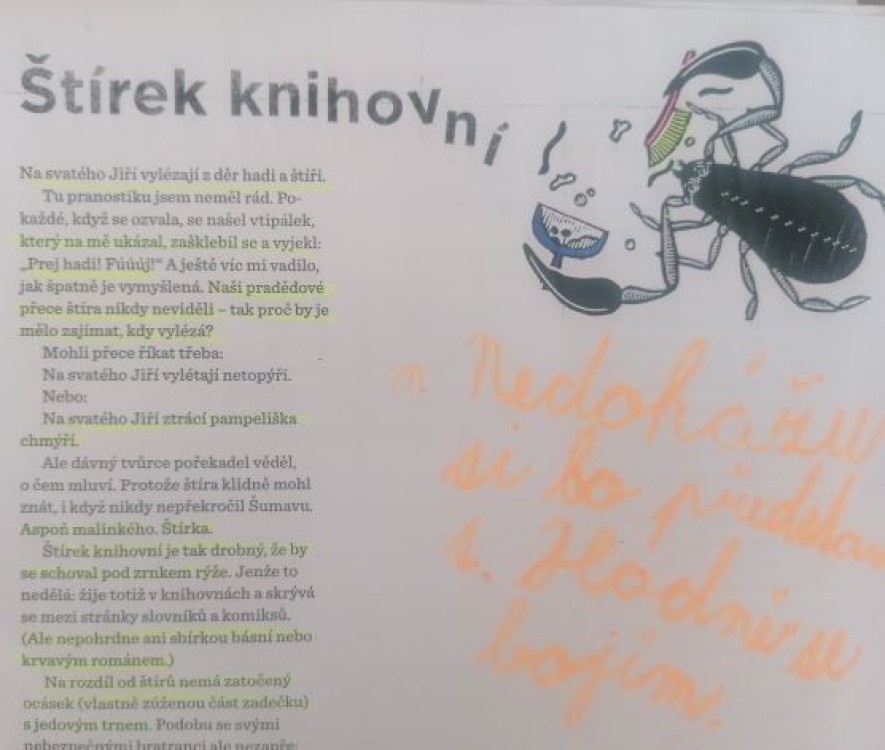 Štírek knihovní
Na svatého Jiří vylézají z děr hadi a štíři.
Tu pranostiku jsem neměl rád. Po-
každé, když se ozvala, se našel vtipálek,
který na mě ukázal, zašklebil se a vyjekl:
„Prej hadi! Fúúúj!“ A ještě víc mi vadilo,
jak špatně je vymyšlená. Naši pradědové
přece štíra nikdy neviděli – tak proč by je
mělo zajímat, kdy vylézá?
Mohli přece říkat třeba:
Na svatého Jiří vylétají netopýři.
Nebo:
Na svatého Jiří ztrácí pampeliška
chmýří.
Ale dávný tvůrce pořekadel věděl,
o čem mluví. Protože štíra klidně mohl
znát, i když nikdy nepřekročil Šumavu.
Aspoň malinkého. Štírka.
Štírek knihovní je tak drobný, že by
se schoval pod zrnkem rýže. Jenže to
nedělá: žije totiž v knihovnách a skrývá
se mezi stránky slovníků a komiksů.
(Ale nepohrdne ani sbírkou básní nebo
krvavým románem.)
Na rozdíl od štírů nemá zatočený
ocásek (vlastně zúženou část zadečku)
s jedovým trnem. Podobu se svými
nebezpečnými bratranci ale nezapře:
Nedokážu
si to
se
bojím.